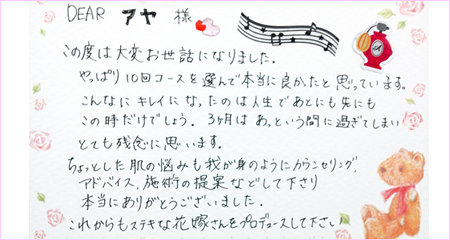 DEAR アヤ 様
この度は大変お世話になりました.
やっぱり10回コースを選んで本当に良かったと思っています.
こんなにキレイになったのは人生であとにも先にも
この時だけでしょう. 3ヶ月はあっという間に過ぎてしまい
とても残念に思います.
ちょっとした肌の悩みも我が身のようにカウンセリング,
アドバイス, 施術の提案などして下さり
本当にありがとうございました.
これからもステキな花嫁さんをプロデュースして下さい